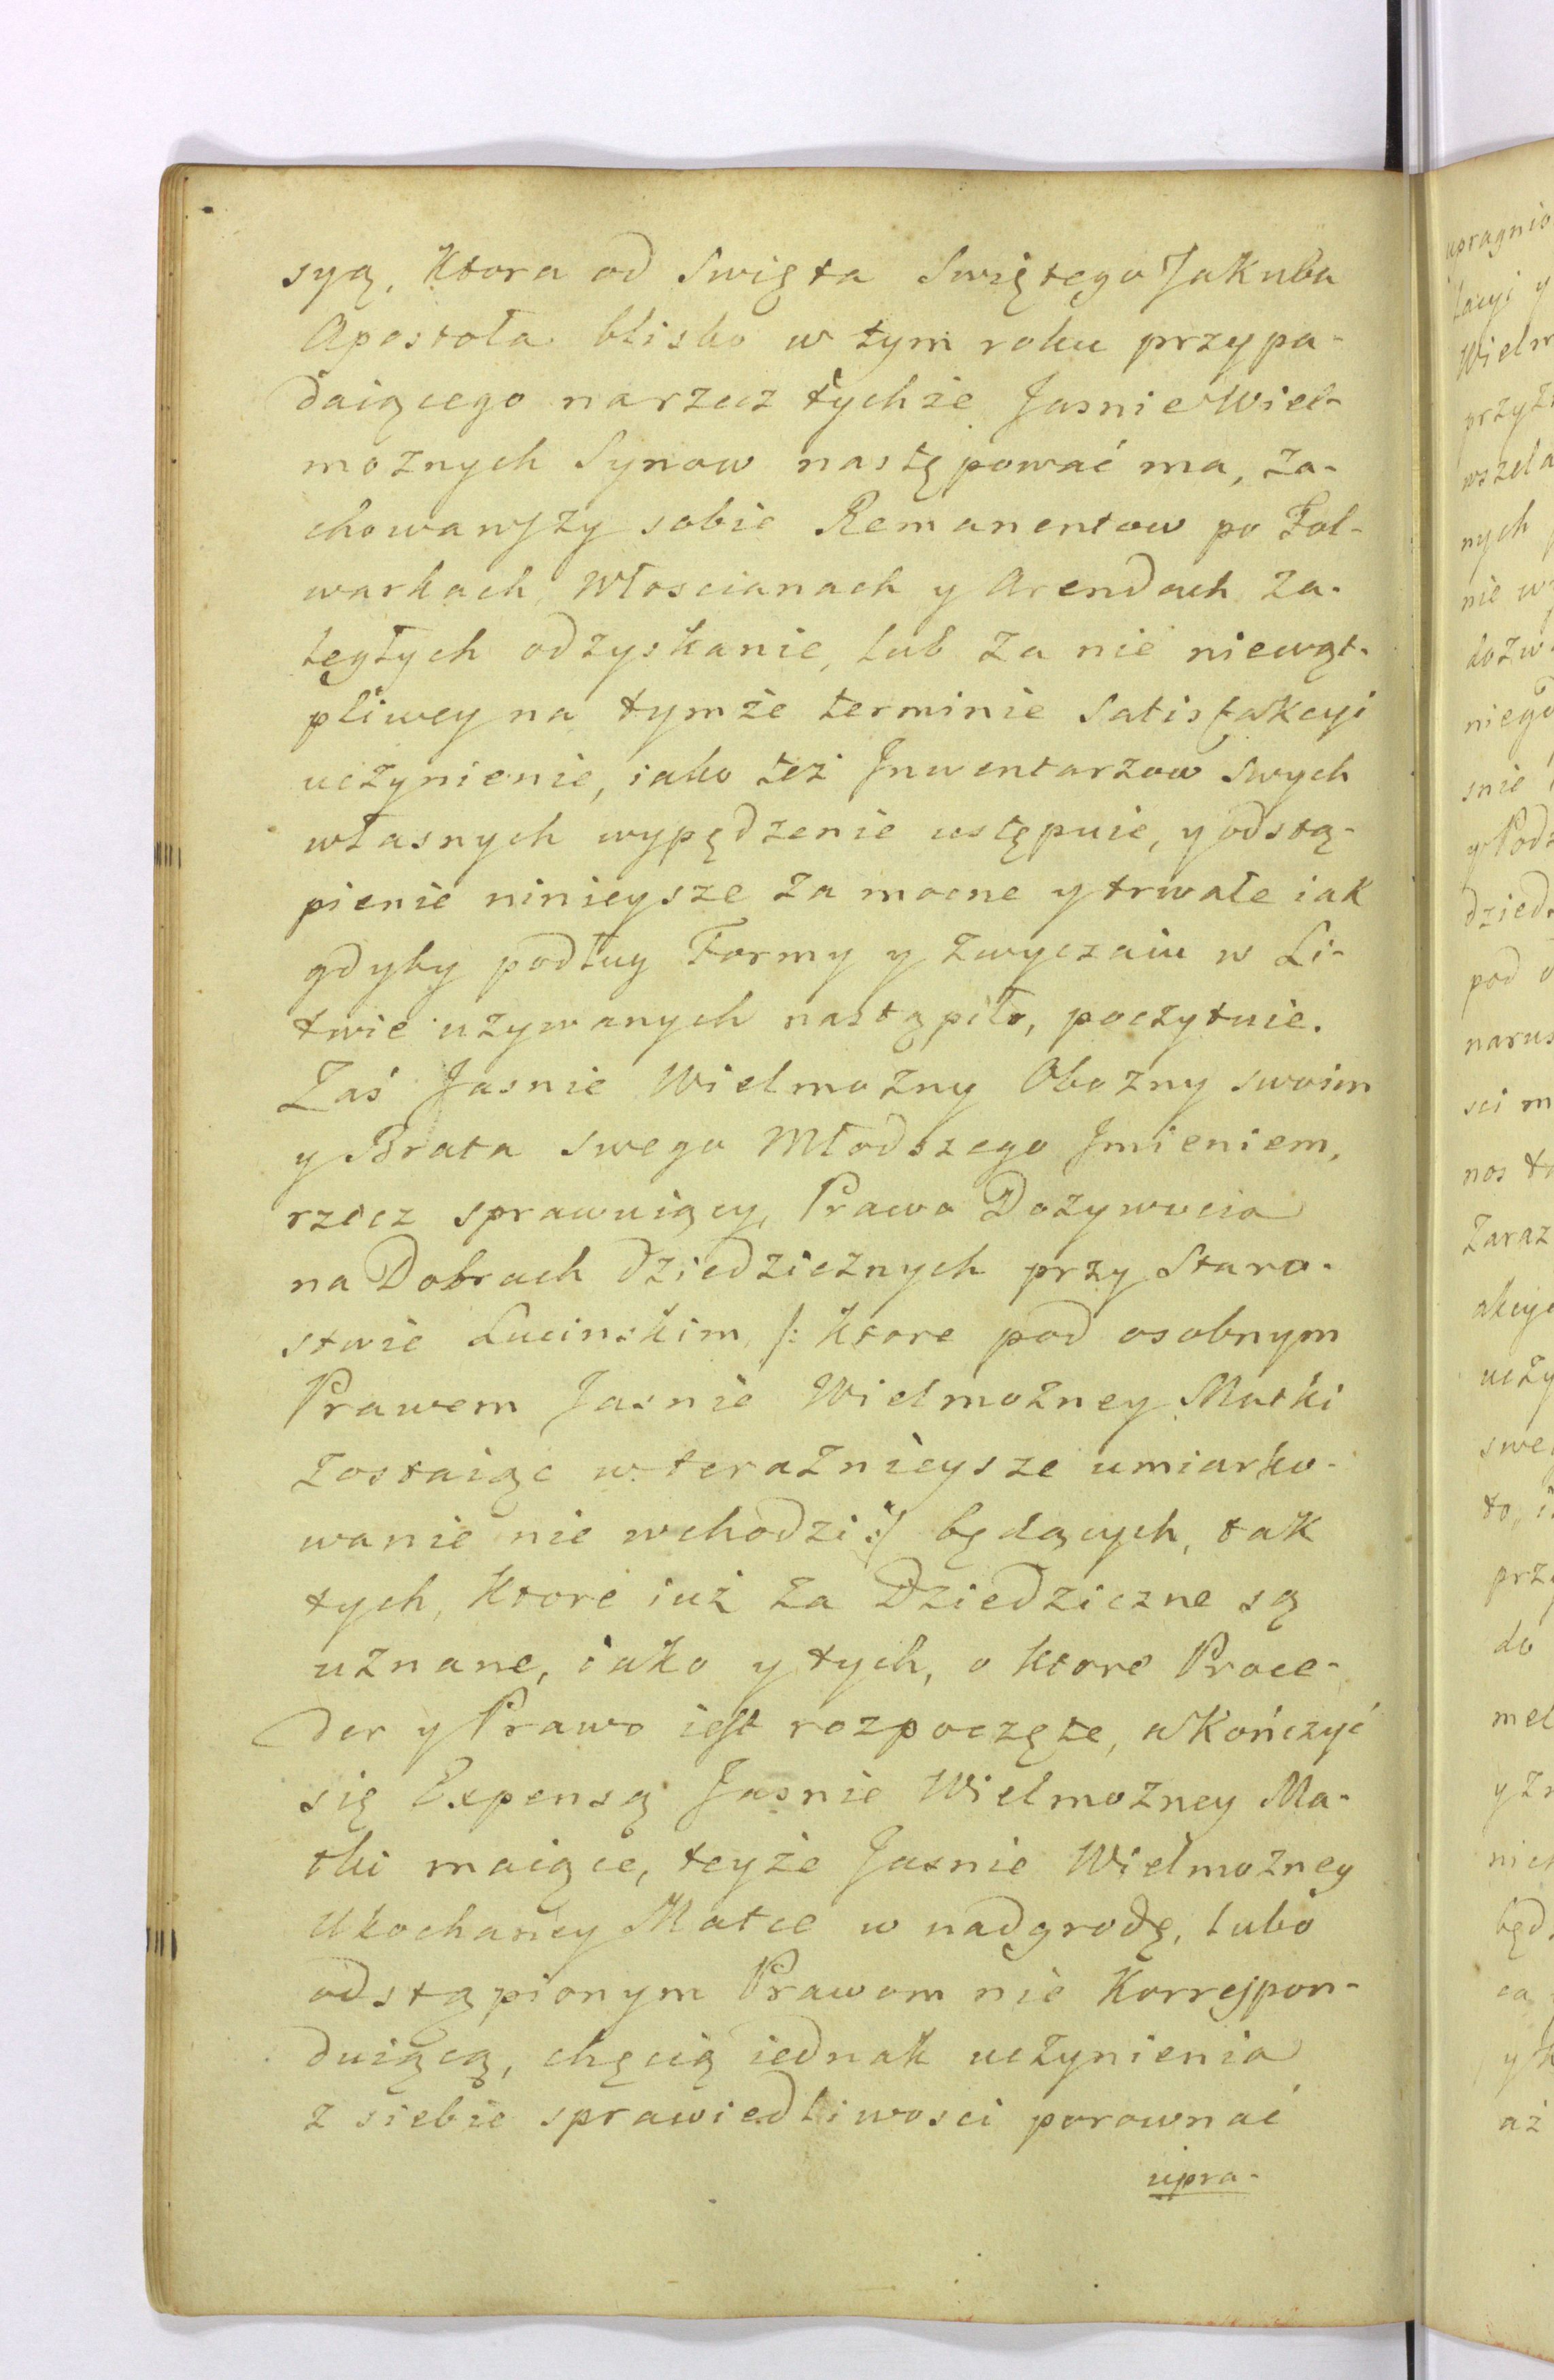 syą, ktora od Swięta Swiętego Jakuba
Apostoła blisko w tym roku przypa-
daiącego narzecz tychże Jasnie Wiel-
moznych Synow następować ma, za-
chowawszy sobie Remanentow po Fol-
warkach, Włoscianach y Arendach za-
ległych odzyskanie, lub za nie niewąt-
pliwey na tymże terminie Satisfakcyi
uczynienie, iako też Inwentarzow swych
własnych wypędzenie ustępuie, y odstą-
pienie ninieysze za mocne y trwałe iak
gdyby podług Formy y zwyczaiu w Li-
twie używanych nastąpiło, poczytuie.
Zaś Jasnie Wielmożny Obozny swoim
y Brata swego Młodszego Imieniem,
rzecz sprawuiący, Prawo Dozywocia
na Dobrach dziedzicznych przy Staro-
stwie Lucinskim, /: ktore pod osobnym
Prawem Jasnie Wielmożney Matki
zostaiąc w teraznieysze umiarko-
wanie nie wchodzi :/ będących, tak
tych, ktore iuż za Dziedziczne są
uznane, iako y tych, o ktore Proce-
der y Prawo iest rozpoczęte, a kończyć
się Expensą Jasnie Wielmożney Ma-
tki maiące, teyże Jasnie Wielmożney
Ukochaney Matce w nadgrodę, lubo
odstąpionym Prawom nie korrespon-
duiącą, chęcią iednak uczynienia
z siebie sprawiedliwosci porownać
upra-
upragnio
tacyi y
Wielm
przyz
wszela
nych
nie w
dozw
niego
snie
y Podz
dzied
pod
narus
sci m
nos
Zaraz
akcye
uczy
swe
to,
prz
do
mel
y zn
nie
będ
ca
aż